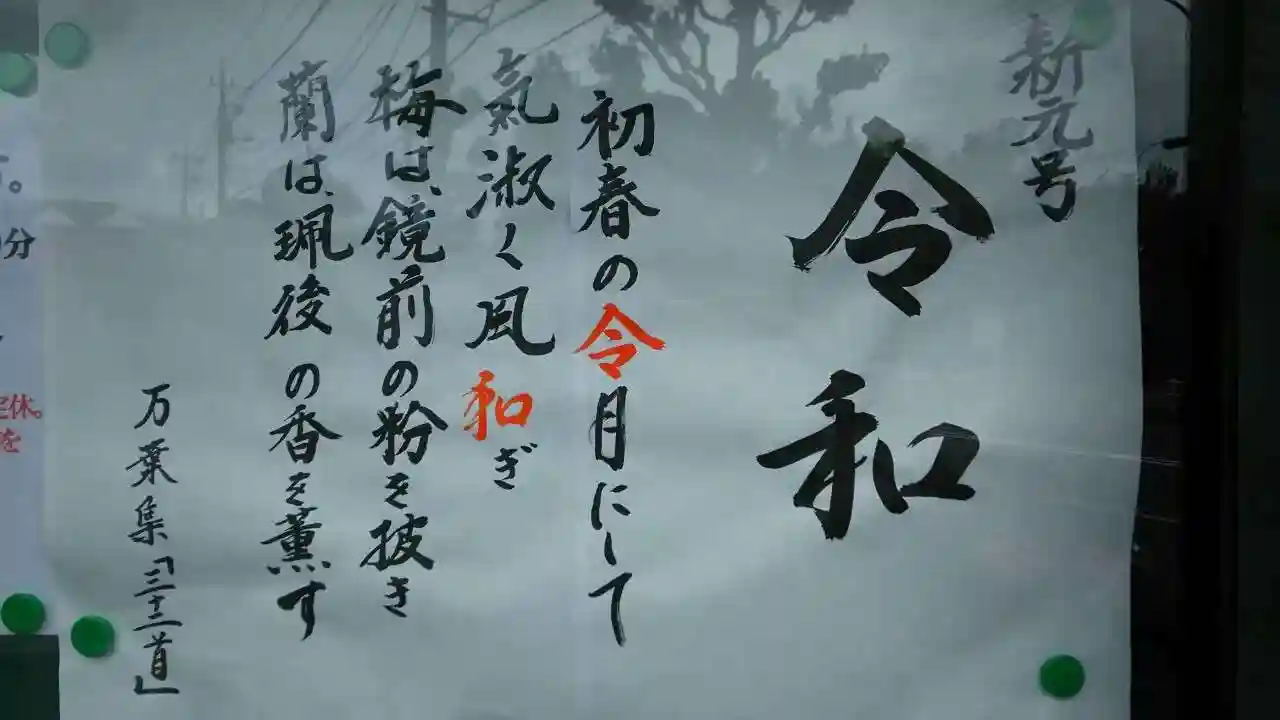 新元号
令和
初春の令月にして
氣淑く風和ぎ
梅は、鏡前の粉を披き
蘭は、珮後の香を薫す
万葉集「三十二首」
。
分
休。
を